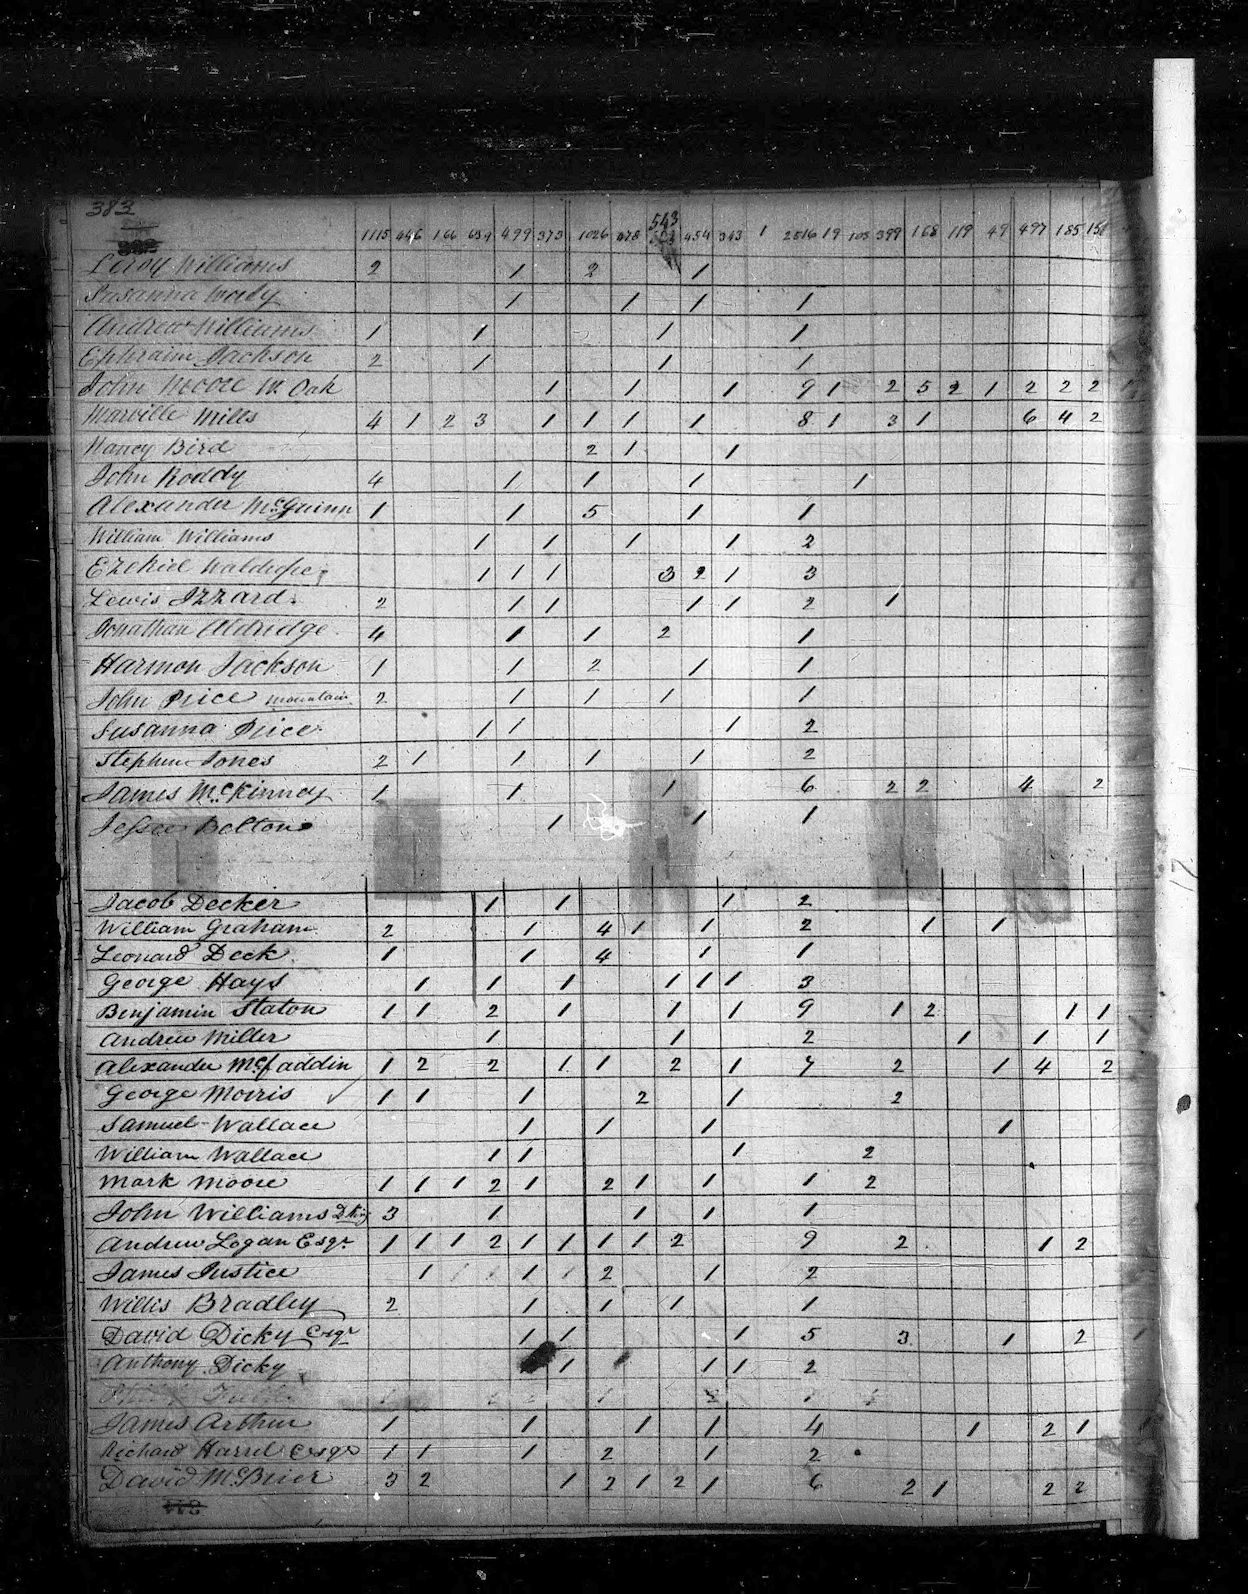 383
1115 446 166 639 499 373 1026 478 543 454 343 1 2516 19 105 399 168 119 49 497 185 150
Leroy Williams 2 1 2 1
Susanna Woody 1 1 1 1
Andrew Williams 1 1 1 1
Ephraim Jackson 2 1 1 1
John Moore W. Oak 1 1 1 9 1 2 5 2 1 2 2 2
Marville Mills 4 1 2 3 1 1 1 1 8 1 3 1 6 4 2
Nancy Bird 2 1 1
John Roddy 4 1 1 1 1
Alexander McGuinn 1 1 5 1 1
William Williams 1 1 1 1 2
Ezekiel Waldrope 1 1 1 3 2 1 3
Lewis Izzard 2 1 1 1 1 2 1
Jonathan Aldridge 4 1 1 2 1
Harmon Jackson 1 1 2 1 1
John Price mountain 2 1 1 1 1
Susanna Price 1 1 1 2
Stephen Jones 2 1 1 1 1 2
James McKinney 1 1 1 6 2 2 4 2
Jessee Belton 1 1 1
Jacob Decker 1 1 1 2
William Graham 2 1 4 1 1 2 1 1
Leonard Deck 1 1 4 1 1
George Hays 1 1 1 1 1 1 3
Benjamin Staton 1 1 2 1 1 1 9 1 2 1 1
Andrew Miller 1 1 2 1 1 1
Alexander McFaddin 1 2 2 1 1 2 1 7 2 1 4 2
George Morris 1 1 1 2 1 2
Samuel Wallace 1 1 1 1
William Wallace 1 1 1 2
Mark Moore 1 1 1 2 1 2 1 1 1 2
John Williams 3 1 1 1 1
Andrew Logan Esqr 1 1 1 2 1 1 1 1 2 9 2 1 2
James Justice 1 1 1 2 1 2
Willis Bradley 2 1 1 1 1
David Dicky Esqr 1 1 1 5 3 1 2 1
Anthony Dicky 1 1 1 2
James Arthur 1 1 1 1 4 1 2 1 1
Richard Harrel Esqr 1 1 1 2 1 2
David McBrier 3 2 1 2 1 2 1 6 2 1 2 2